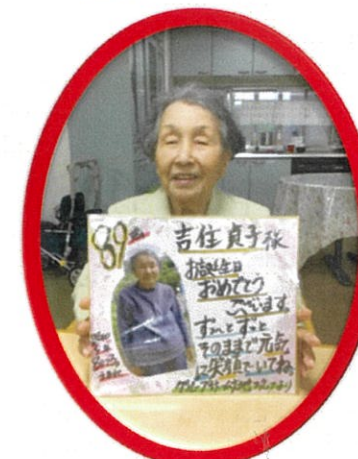 89歳
吉住貞子様
お誕生日
おめでとう
ございます。
ずっとずっと
そのままで元気
に笑顔でいてね。